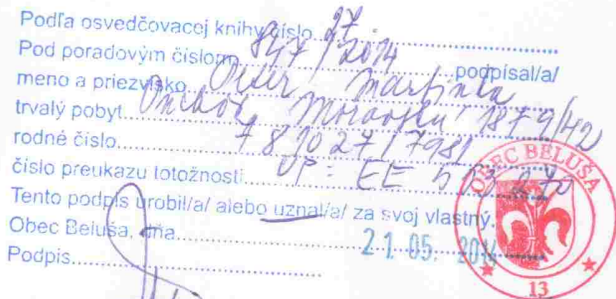 Podľa osvedčovacej knihy číslo 27
Pod poradovým číslom 847/2014 podpísal/a/
meno a priezvisko Peter Martinka
trvalý pobyt 1879/42
rodné číslo 781027/7981
číslo preukazu totožnosti OP: EE 503 270
Tento podpis urobil/a/ alebo uznal/a/ za svoj vlastný.
Obec Beluša, dňa 21. 05. 2014
Podpis
OBEC BELUŠA
13